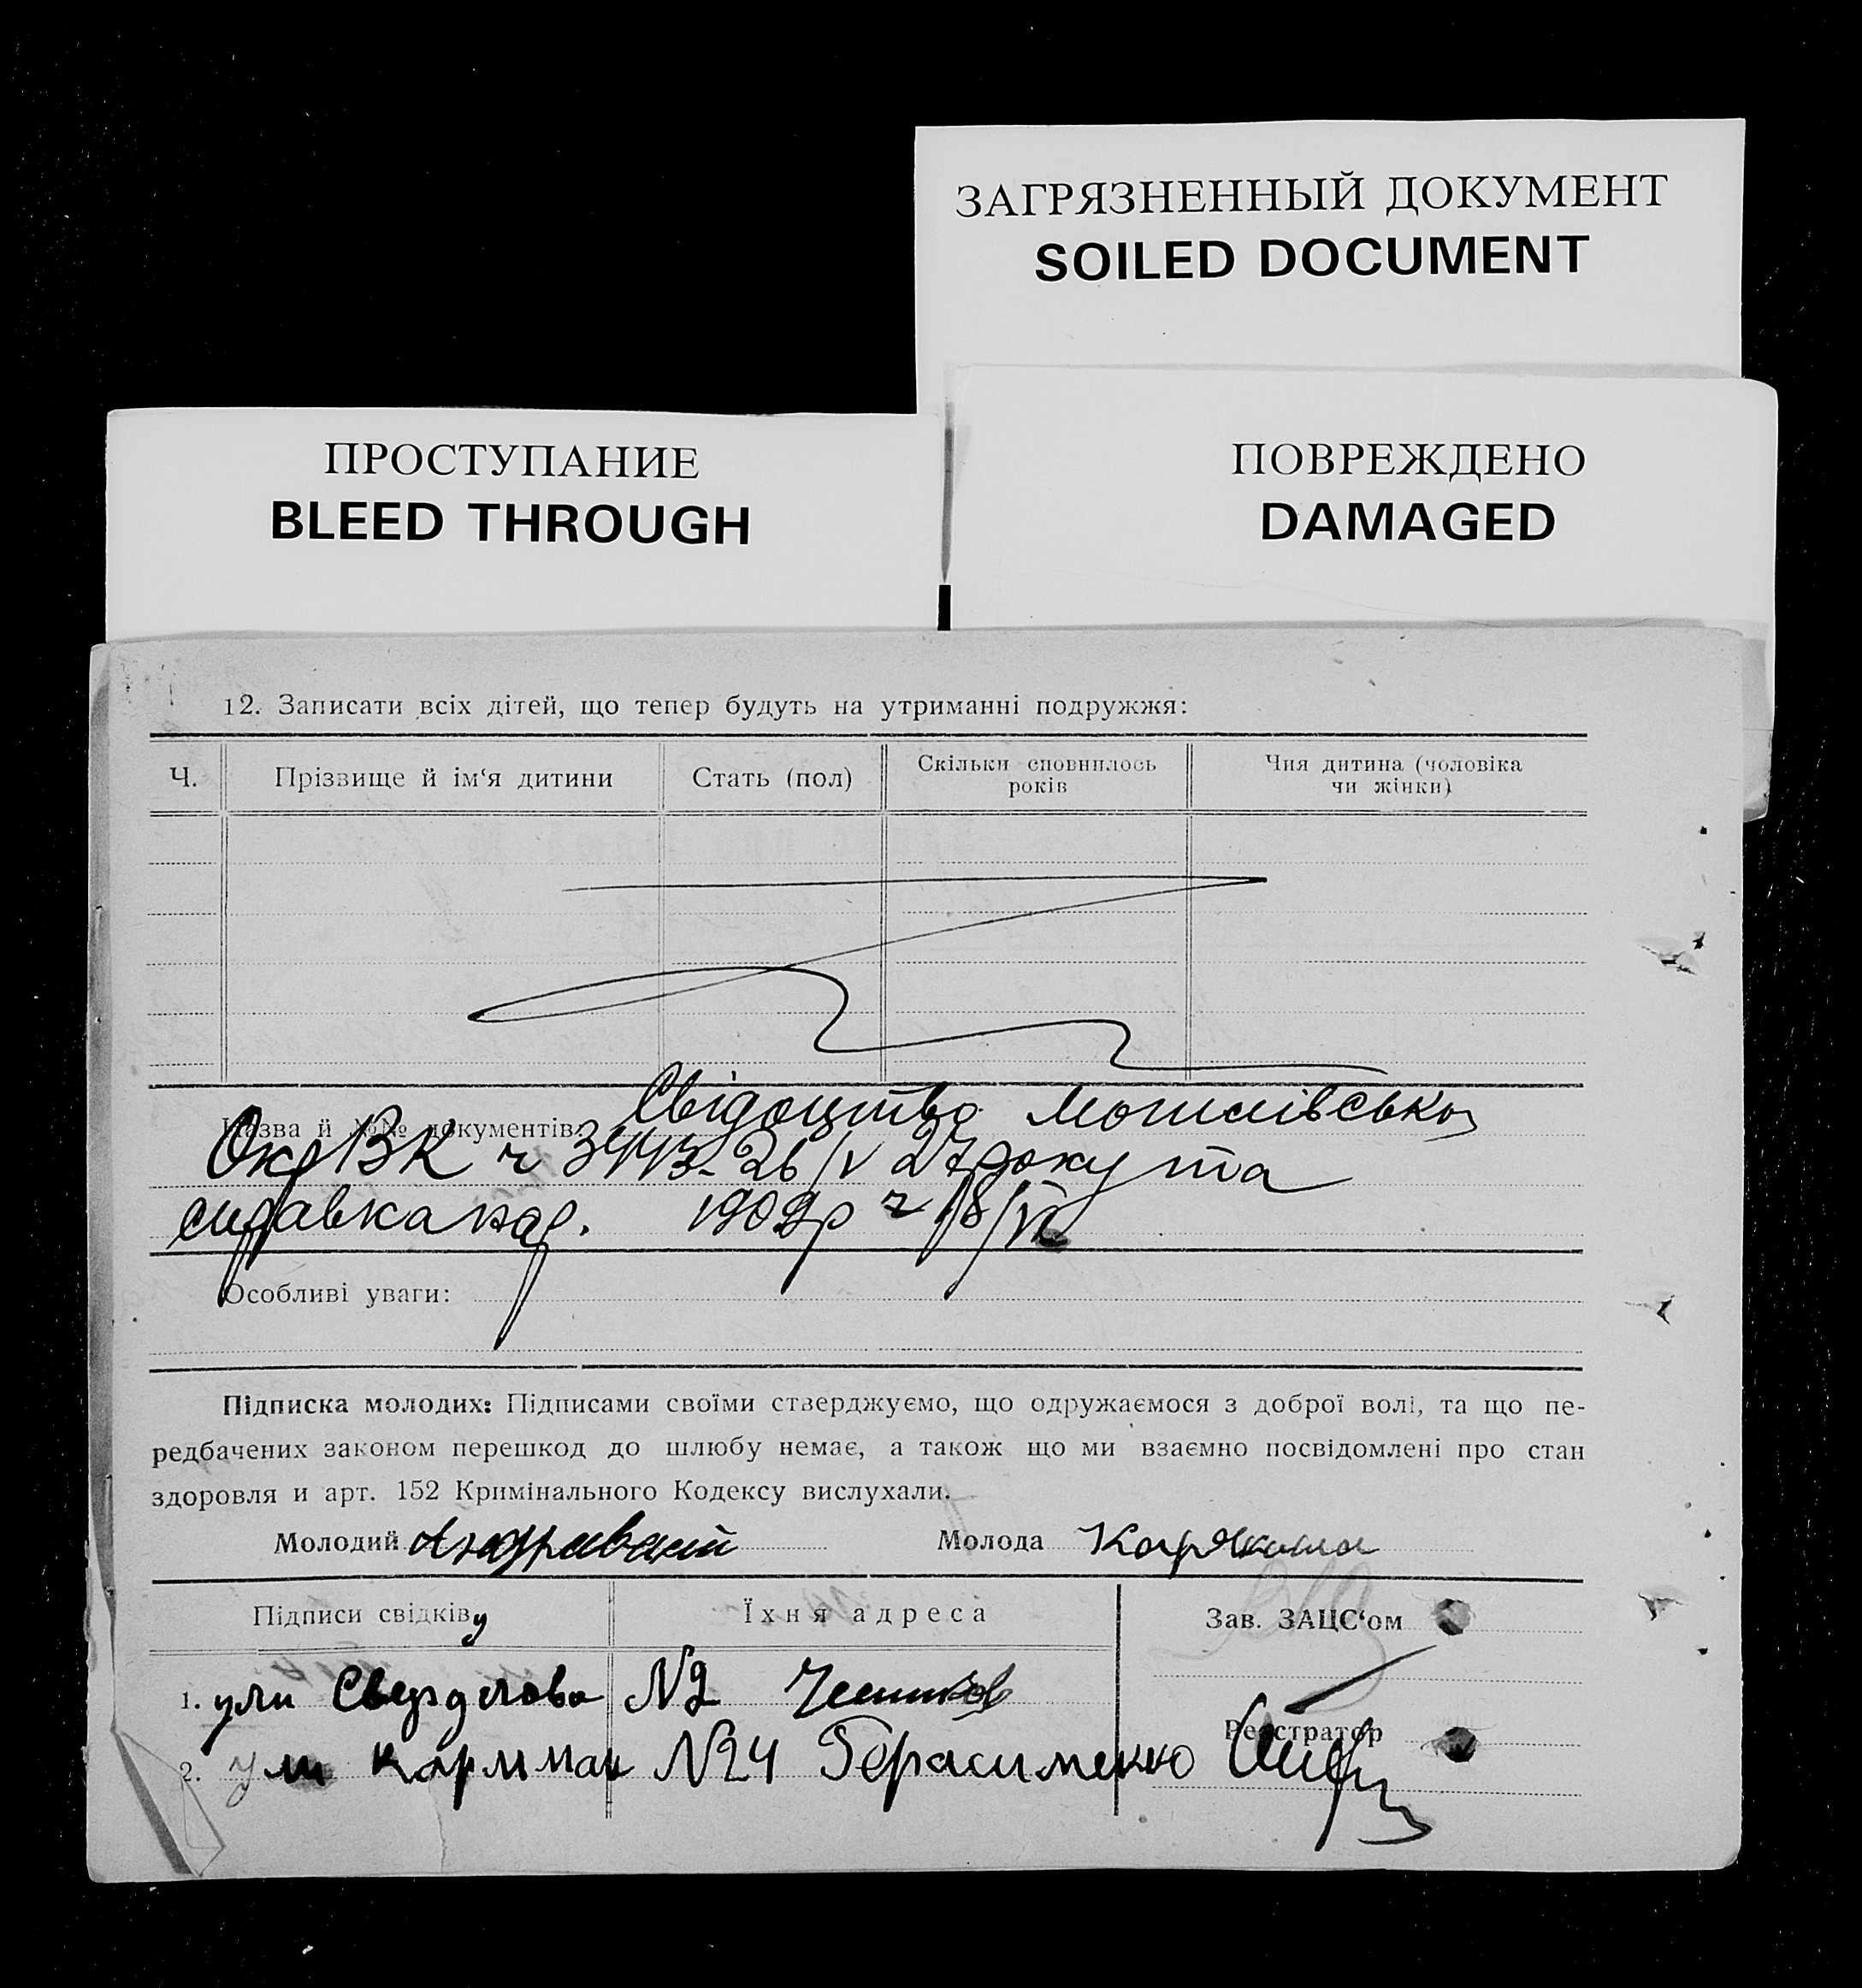 ЗАГРЯЗНЕННЫЙ ДОКУМЕНТ
SOILED DOCUMENT
ПРОСТУПАНИЕ
BLEED THROUGH
ПОВРЕЖДЕНО
DAMAGED
12. Записати всіх дітей, що тепер будуть на утриманні подружжя:
Ч.
Прізвище й ім‘я дитини
Стать (пол)
Скільки сповнилось
років
Чия дитина (чоловіка
чи жінки)
Назва й №№ документів:
Свідоцтво
ОкрВК ч 26/V 27 року та
справка 1909р ч
Особливі уваги:
Підписка молодих: Підписами своїми стверджуємо, що одружаємося з доброї волі, та що пе-
редбачених законом перешкод до шлюбу немає, а також що ми взаємно посвідомлені про стан
здоровля и арт. 152 Кримінального Кодексу вислухали.
Молодий
Молода Карякина
Підписи свідків
Їхня адреса
Зав. ЗАЦС‘ом
1. ули Свердлова №2
Реєстратор
2. ули №24 Герасименко